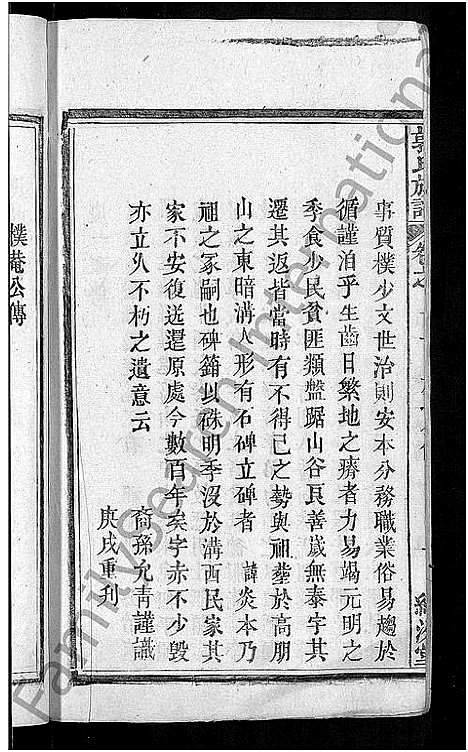 郭氏族譜
事質樸少文世治則安本分務職業俗易趨於
循謹洎乎生齒日繁地之瘠者力易竭元明之
季食少民貧匪類盤踞山谷良善歲無泰宇其
遷其返皆當時有不得已之勢與祖塋於高朋
山之東暗溝人形有石碑立碑者 諱炎本乃
祖之冢嗣也碑鎸以硃明季沒於溝西民家其
家不安復送還原處今數百年矣字赤不少毀
亦立乆不朽之遺意云
裔孫允青謹識
庚戌重刋
樸菴公傳
FamilySearch International